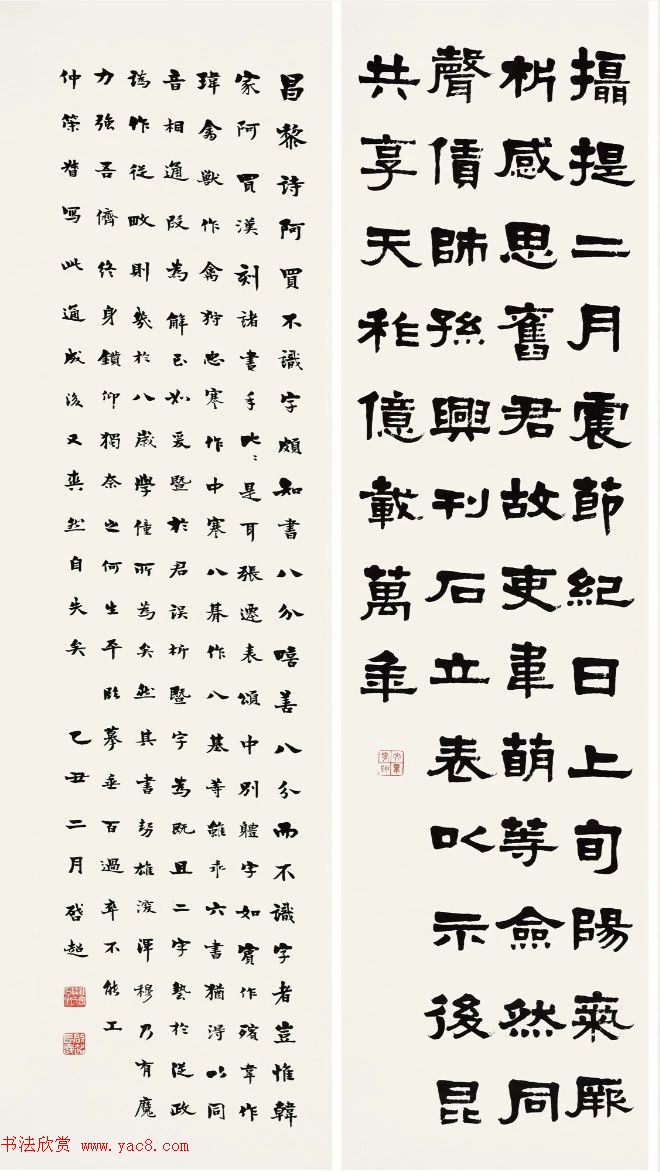 攝提二月震節紀日上旬陽氣厥
析感思舊君故吏韋萌等僉然同
聲賃師孫興刊石立表以示後昆
共享天祚億載萬年
昌黎詩阿買不識字頗知書八分嘻善八分而不識字者豈惟韓
家阿買漢刻諸書手比々是耳張遷表頌中別體字如賓作殯韋作
瑋禽獸作禽狩忠寒作中寒八碁作八基等雖乖六書猶得以同
音相通叚為解已如爰暨於君誤析暨字為既且二字藝於從政
譌作從畋則幾於八歲學僮所為矣然其書勢雄浚渾穆乃有魔
力強吾儕終身鑽仰獨奈之何生平臨摹垂百過卒不能工
仲策督寫此通成後又爽然自失矣 乙丑二月啓超
书法欣赏 www.yac8.com